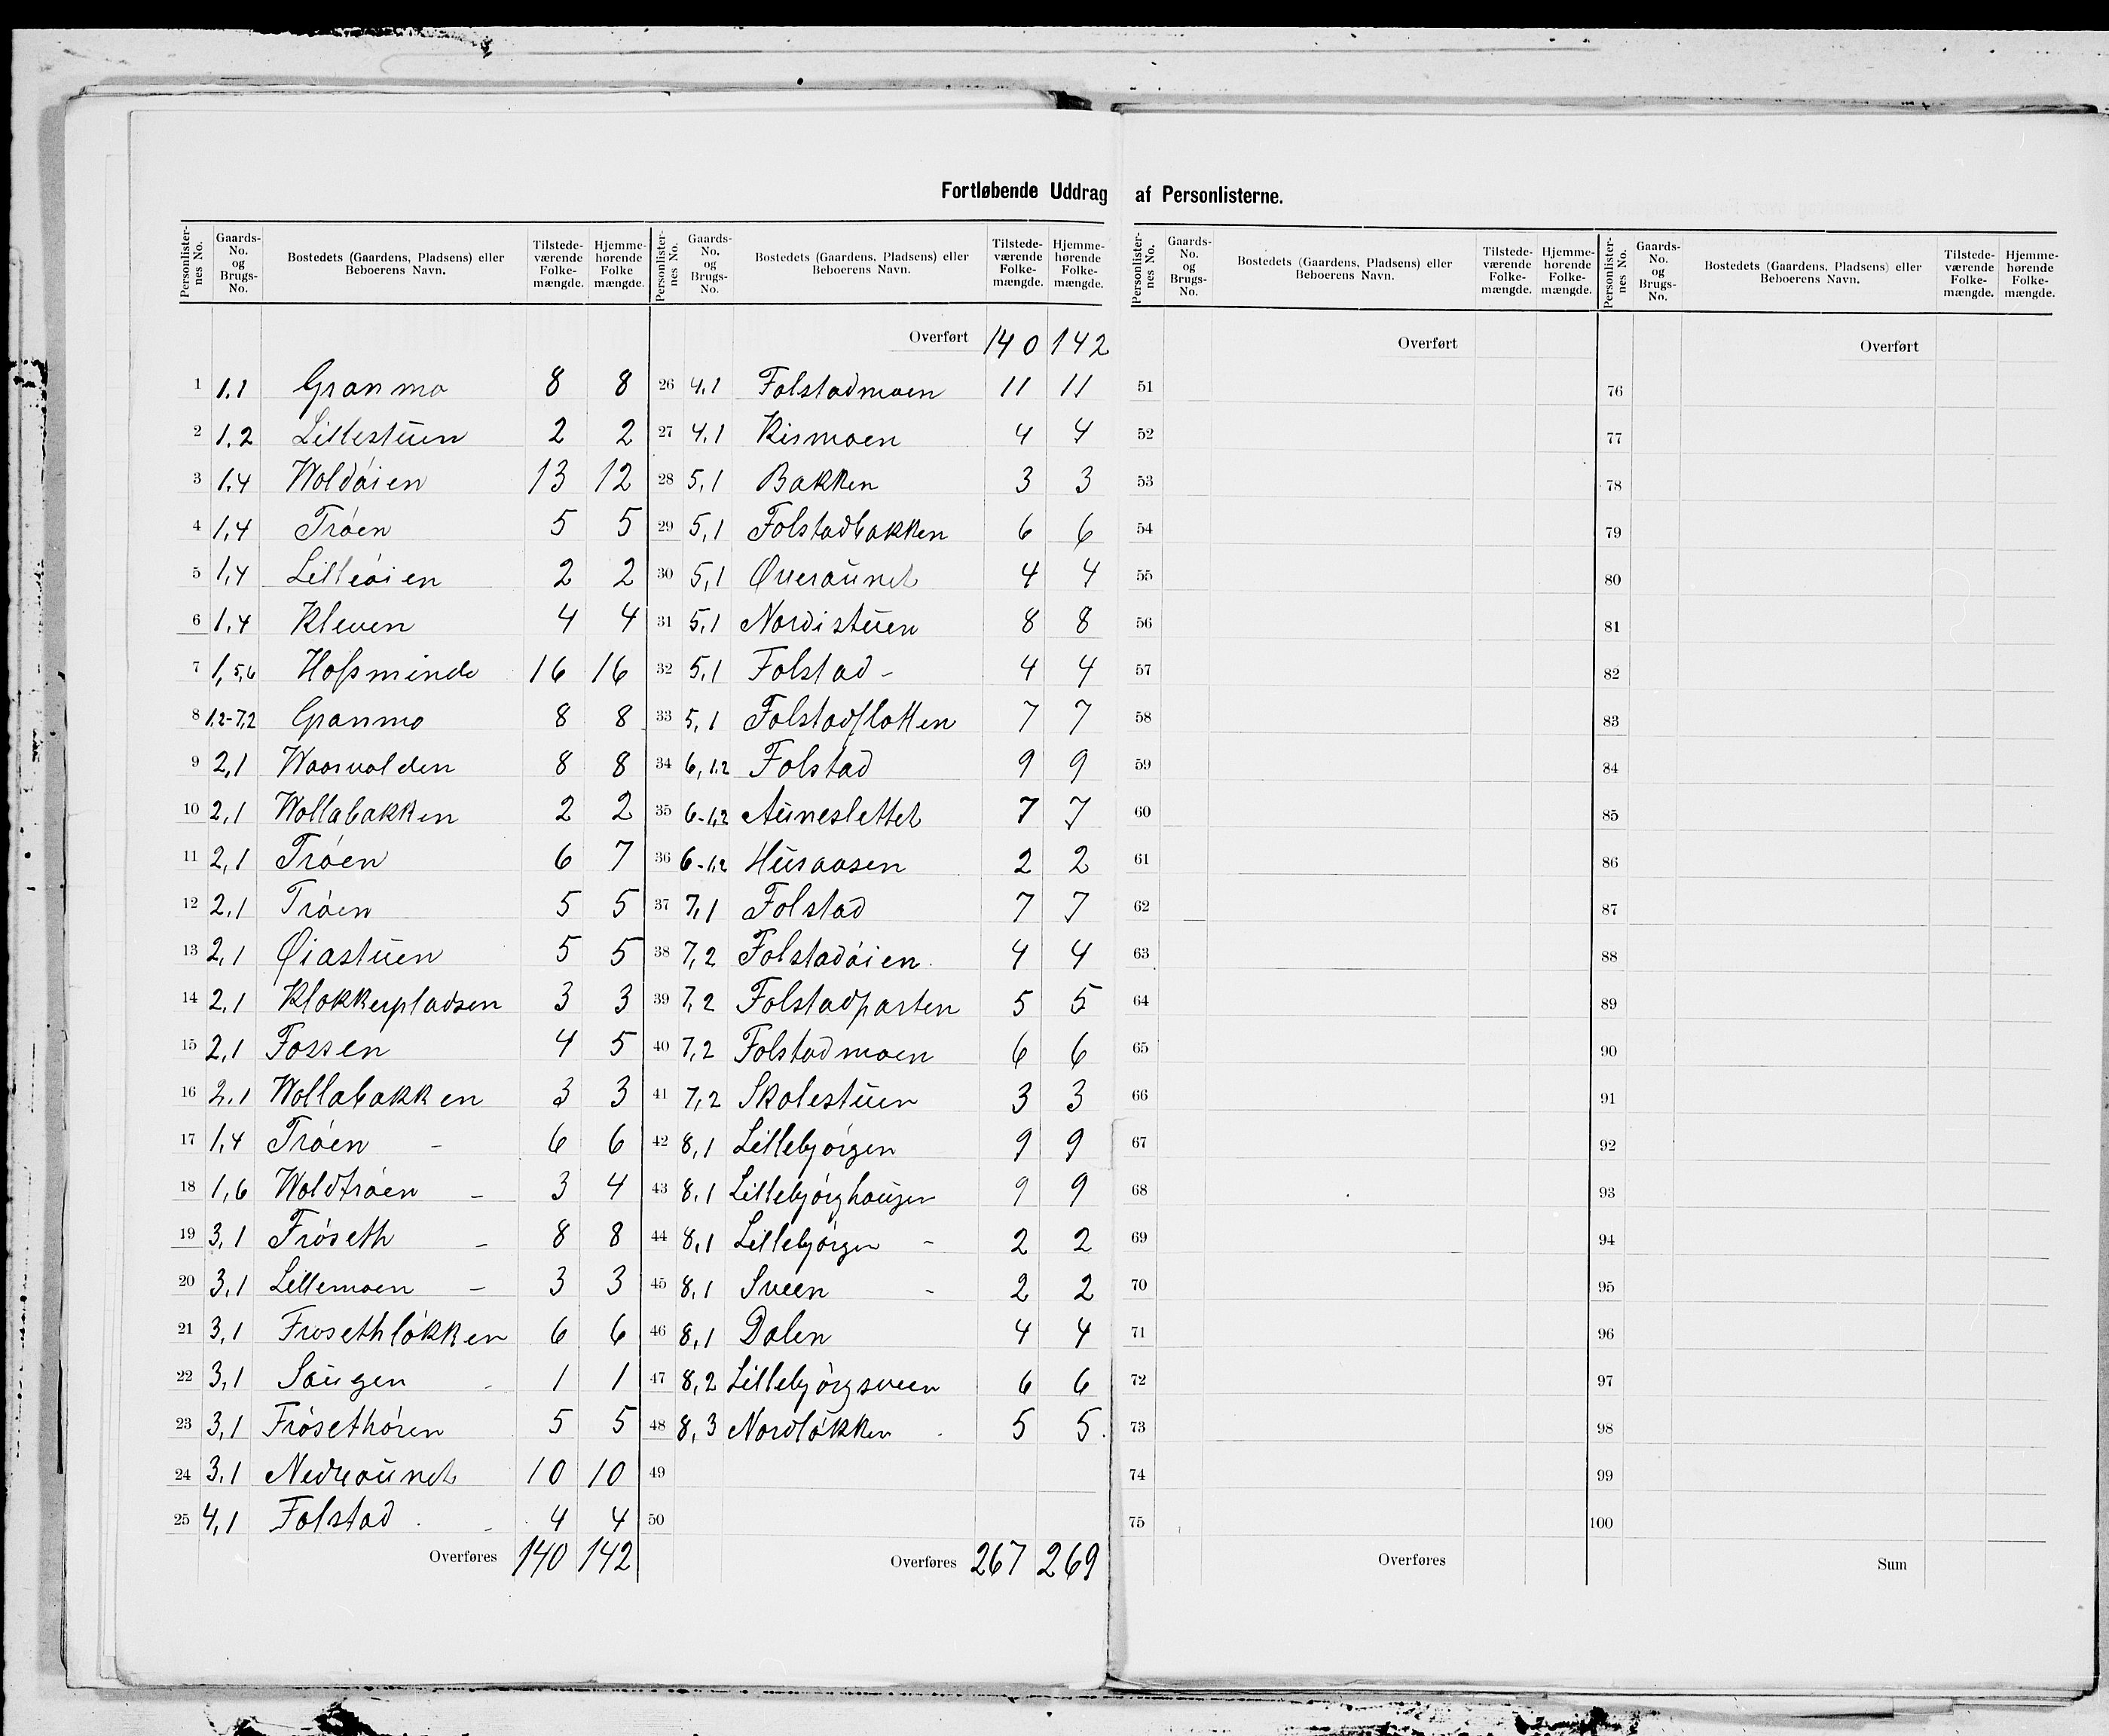 Fortløbende Uddrag af Personlisterne.
Personlisternes No. Gaards-No. og Brugs-No. Bostedets (Gaardens, Pladsens) eller Beboerens Navn. Tilstedeværende Folkemængde. Hjemmehørende Folke mængde.
1 1.1 Granmo 8 8
2 1.2 Lillestuen 2 2
3 1.4 Woldöien 13 12
4 1,4 Tröen 5 5
5 1,4 Lilleöien 2 2
6 1,4 Kleven 4 4
7 1,5,6 Hofsminde 16 16
8 1,2-7,2 Granmo 8 8
9 2,1 Waarvolden 8 8
10 2,1 Wollabakken 2 2
11 2,1 Tröen 6 7
12 2,1 Tröen 5 5
13 2,1 Øiastuen 5 5
14 2,1 Klokkerpladsen 3 3
15 2,1 Fossen 4 5
16 2,1 Wollabakken 3 3
17 1,4 Tröen - 6 6
18 1,6 Woldtröen - 3 4
19 3,1 Fröseth - 8 8
20 3,1 Lillemoen - 3 3
21 3,1 Frosethlökken 6 6
22 3,1 Saugen - 1 1
23 3,1 Frösethören 5 5
24 3,1 Nedreaunet 10 10
25 4,1 Folstad - 4 4
Overføres 140 142
Personlisternes No. Gaards-No. og Brugs-No. Bostedets (Gaardens, Pladsens) eller Beboerens Navn. Tilstedeværende Folkemængde. Hjemmehørende Folkemængde.
Overført 140 142
26 4,1 Folstadmoen 11 11
27 4,1 Kismoen 4 4
28 5,1 Bakken 3 3
29 5,1 Folstadbakken 6 6
30 5,1 Øveraunet 4 4
31 5,1 Nordistuen 8 8
32 5,1 Folstad - 4 4
33 5,1 Folstadflotten 7 7
34 6,1,2 Folstad 9 9
35 6-1,2 Auneslettet 7 7
36 6-1,2 Husaasen 2 2
37 7,1 Folstad 7 7
38 7,2 Folstadöien 4 4
39 7,2 Folstadparten 5 5
40 7,2 Folstadmoen 6 6
41 7,2 Skolestuen 3 3
42 8,1 Lillebjörgen 9 9
43 8,1 Lillebjörghaugen 9 9
44 8,1 Lillebjörgen - 2 2
45 8,1 Sveen - 2 2
46 8,1 Dalen 4 4
47 8,2 Lillebjörgsveen 6 6
48 8,3 Nordlökken 5 5
49
50
Overføres 267 269
Personlisternes No. Gaards-No. og Brugs-No. Bostedets (Gaardens, Pladsens) eller Beboerens Navn. Tilstedeværende Folkemængde. Hjemmehørende Folkemængde.
Overført
51
52
53
54
55
56
57
58
59
60
61
62
63
64
65
66
67
68
69
70
71
72
73
74
75
Overføres
Personlisternes No. Gaards-No. og Brugs-No. Bostedets (Gaardens, Pladsens) eller Beboerens Navn. Tilstedeværende Folkemængde. Hjemmehørende Folkemængde.
Overført
76
77
78
79
80
81
82
83
84
85
86
87
88
89
90
91
92
93
94
95
96
97
98
99
100
Sum